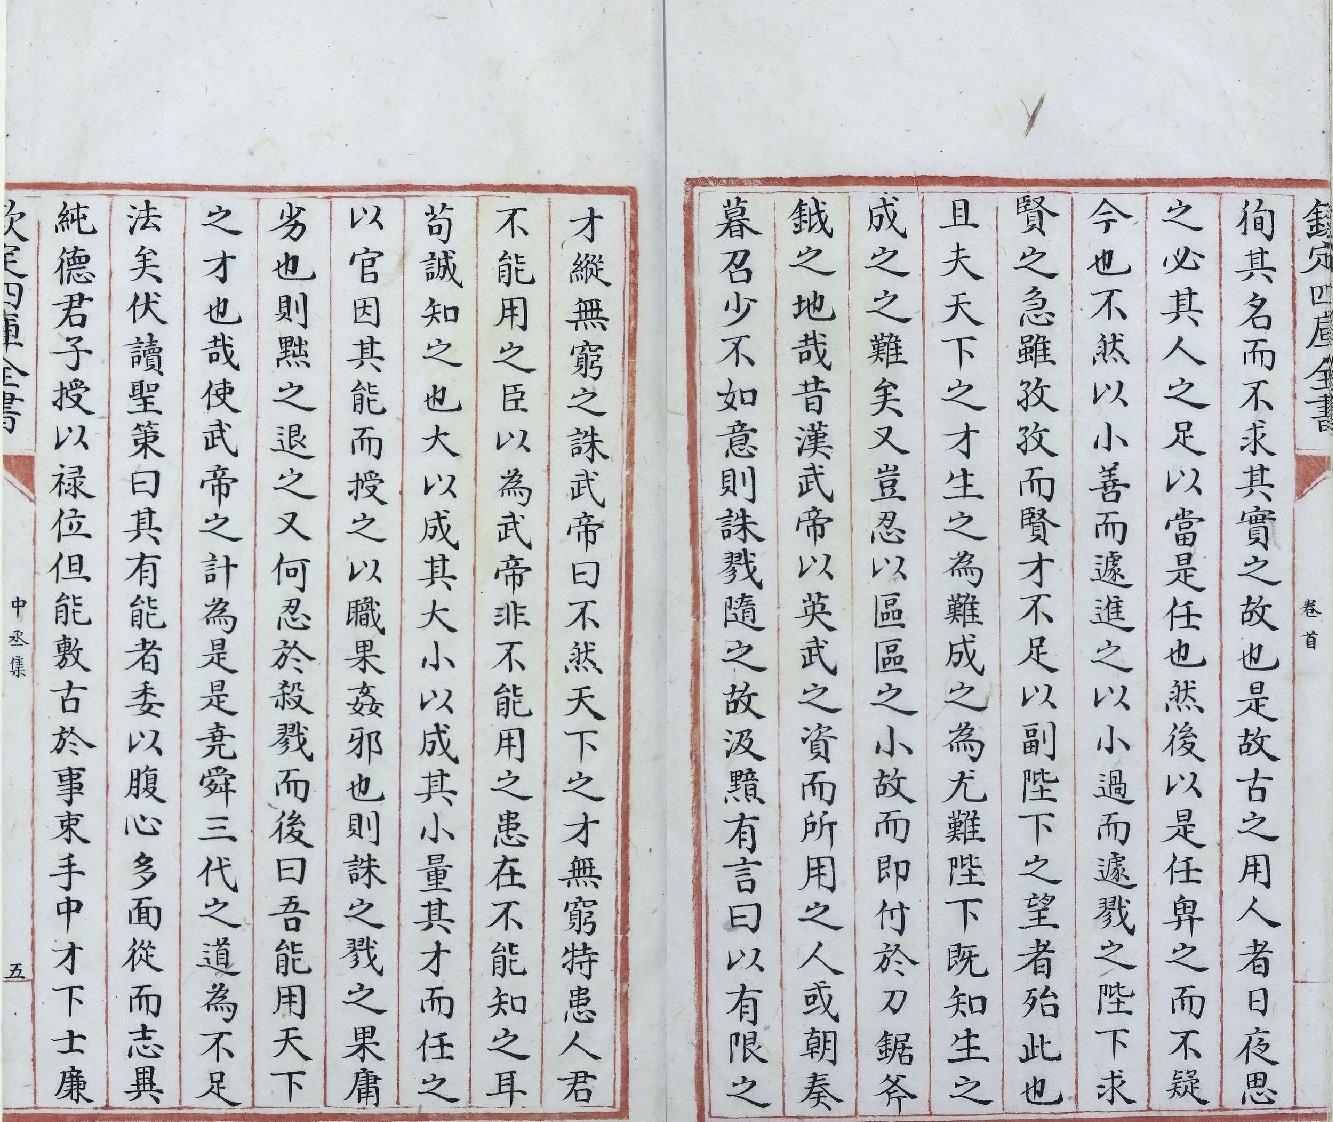 欽定四庫全書
卷首
徇其名而不求其實之故也是故古之用人者日夜思
之必其人之足以當是任也然後以是任畀之而不疑
今也不然以小善而遽進之以小過而遽戮之陛下求
賢之急雖孜孜而賢才不足以副陛下之望者殆此也
且夫天下之才生之為難成之為尤難陛下既知生之
成之之難矣又豈忍以區區之小故而即付於刀鋸斧
鉞之地哉昔漢武帝以英武之資而所用之人或朝奏
暮召少不如意則誅戮隨之故汲黯有言曰以有限之
才縱無窮之誅武帝曰不然天下之才無窮特患人君
不能用之臣以為武帝非不能用之患在不能知之耳
苟誠知之也大以成其大小以成其小量其才而任之
以官因其能而授之以職果姦邪也則誅之戮之果庸
劣也則黜之退之又何忍於殺戮而後曰吾能用天下
之才也哉使武帝之計為是是堯舜三代之道為不足
法矣伏讀聖策曰其有能者委以腹心多面從而志異
純德君子授以祿位但能敷古於事束手中才下士廉
欽定四庫全書
中丞集
五